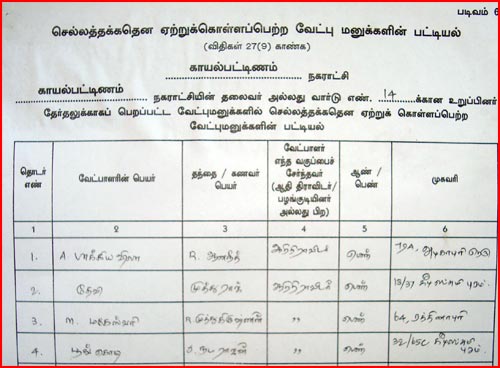 படிவம் 6
செல்லத்தக்கதென ஏற்றுக்கொள்ளப்பெற்ற வேட்பு மனுக்களின் பட்டியல்
(விதிகள் 27(9) காண்க)
காயல்பட்டிணம் நகராட்சி
காயல்பட்டிணம் நகராட்சியின் தலைவர் அல்லது வார்டு எண். 14 க்கான உறுப்பினர்
தேர்தலுக்காகப் பெறப்பட்ட வேட்புமனுக்களில் செல்லத்தக்கதென ஏற்றுக் கொள்ளப்பெற்ற
வேட்புமனுக்களின் பட்டியல்
தொடர் எண் வேட்பாளரின் பெயர் தந்தை / கணவர் பெயர் வேட்பாளர் எந்த வகுப்பைச் சேர்ந்தவர் (ஆதி திராவிடர்/ பழங்குடியினர் அல்லது பிற) ஆண் / பெண் முகவரி
1 2 3 4 5 6
1. A. பாக்கிய ஷீலா R. ஆதிதிராவிடர் பெண்
2. ஆதிதிராவிடர் பெண்
3. M. மகேஸ்வரி ,, பெண் 64, ரத்தினாபுரி
4. பூங்கொடி ,, பெண்